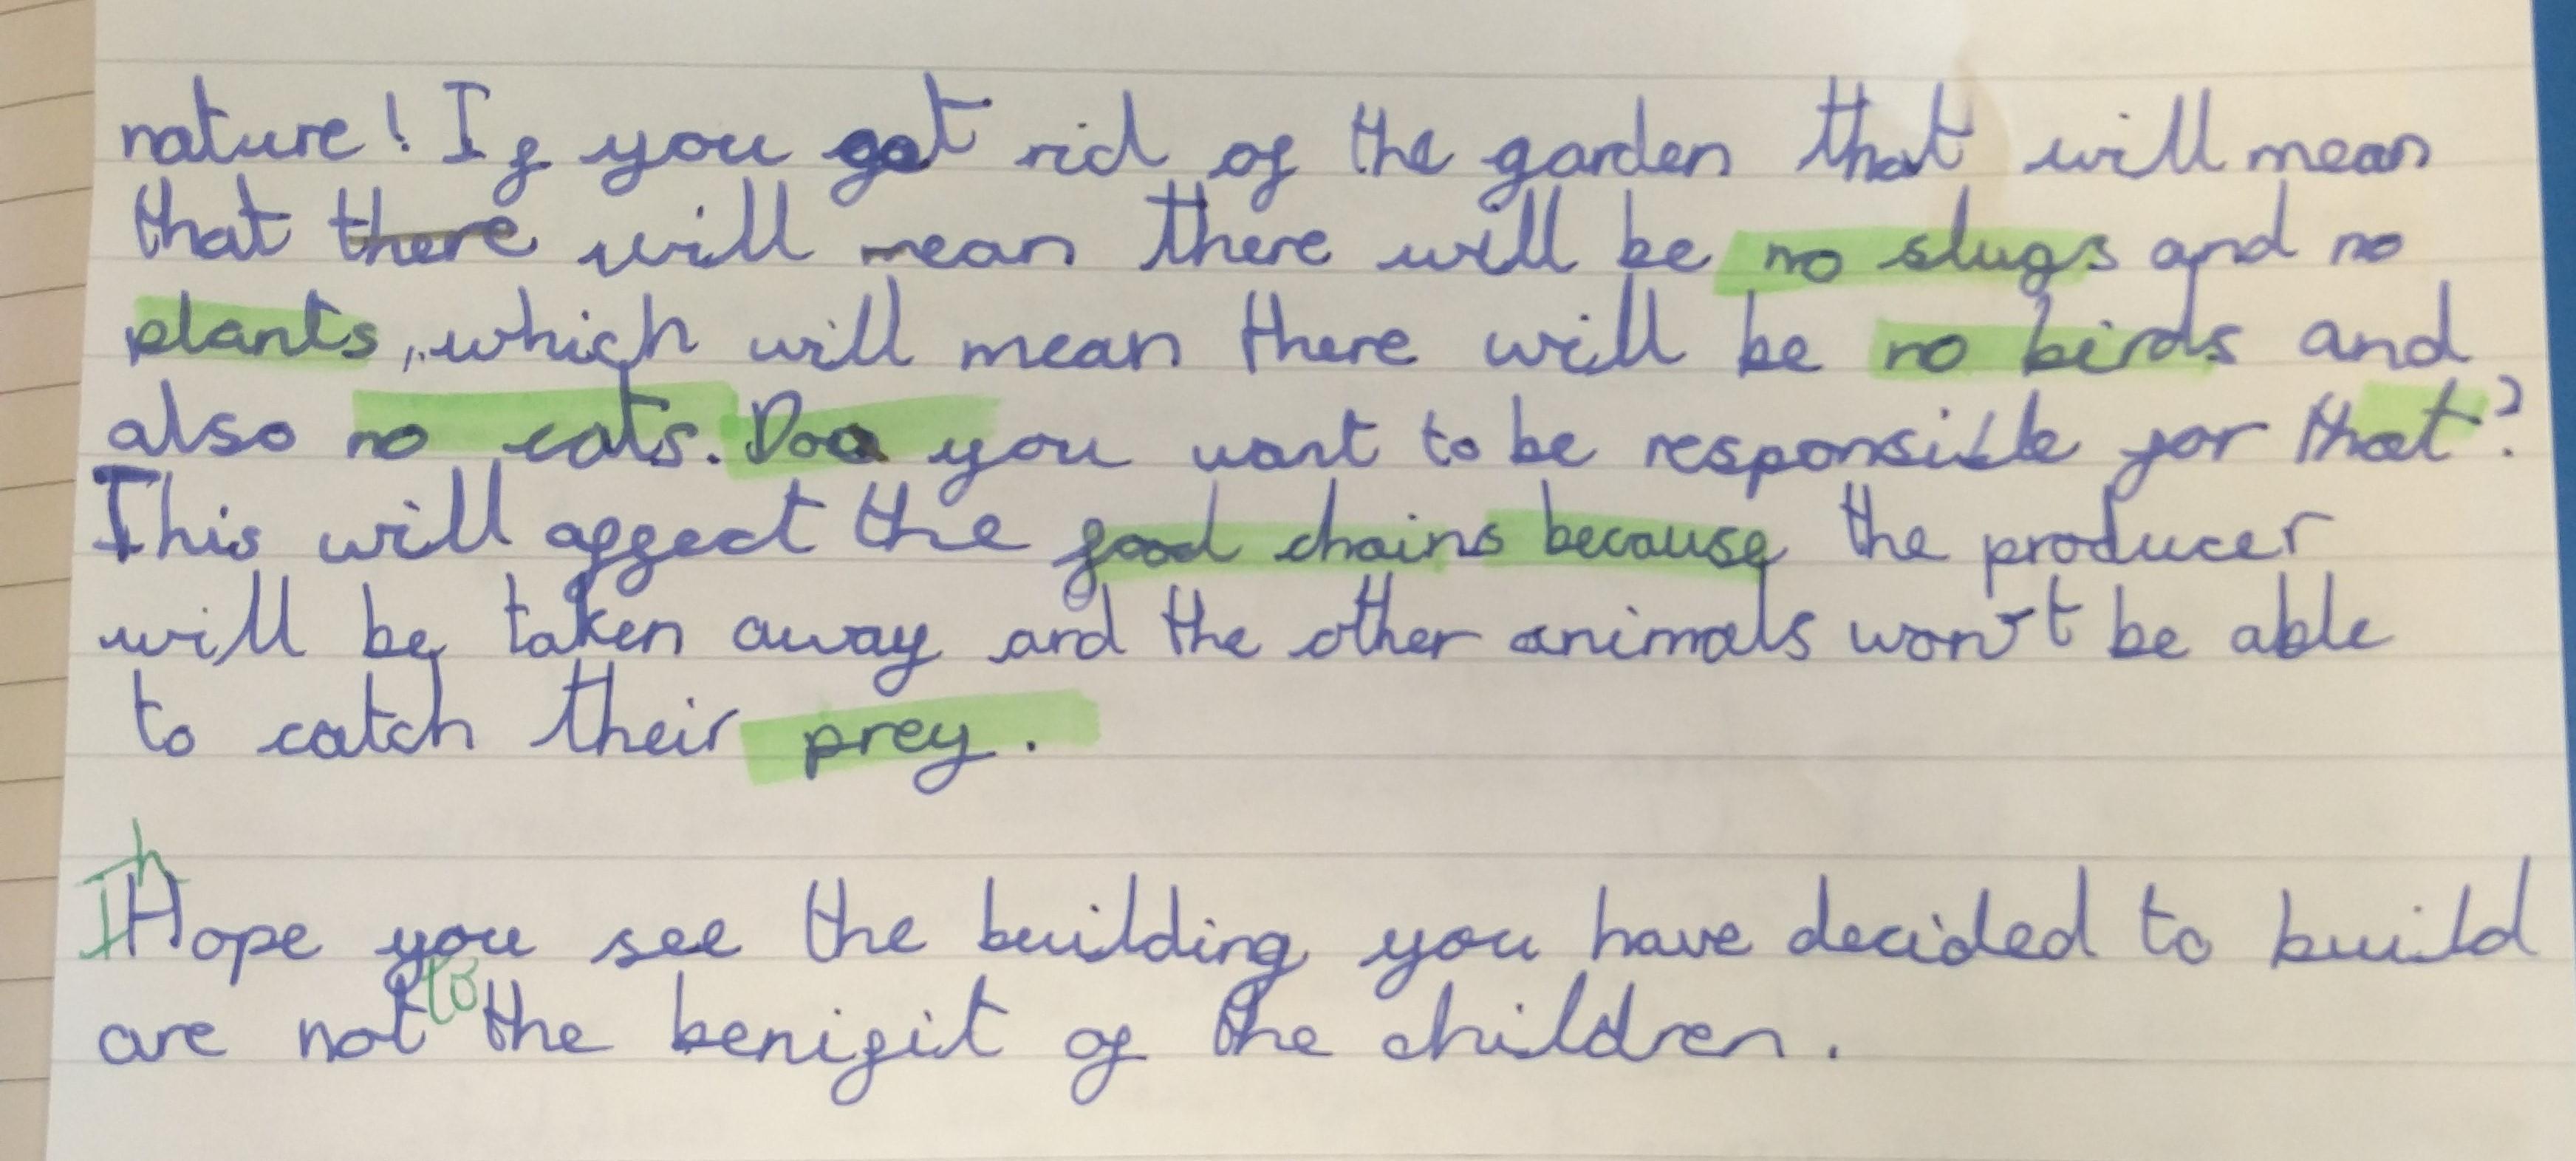 nature! If you get rid of the garden that will mean
that there will mean there will be no slugs and no
plants, which will mean there will be no birds and
also no cats. Do you want to be responsible for that?
This will affect the food chains because the producer
will be taken away and the other animals won't be able
to catch their prey.
I hope you see the building you have decided to build
are not to the benifit of the children.